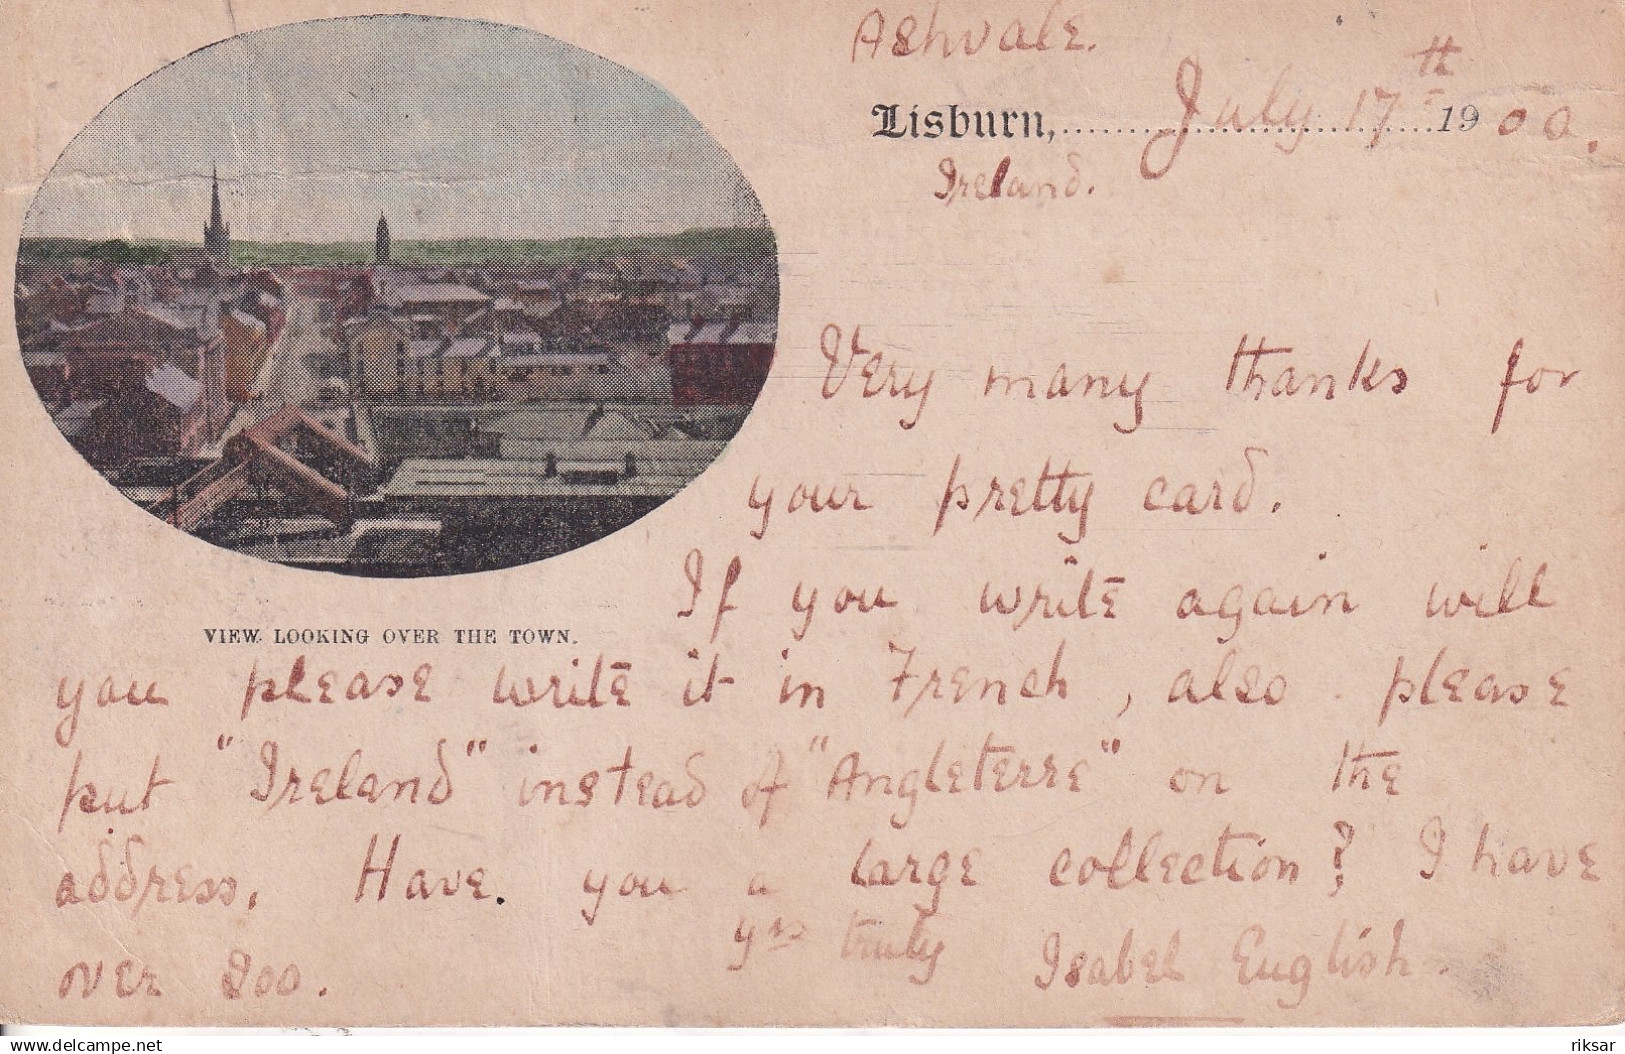 Ashvale.
Lisburn, July 17th 1900.
Ireland.
VIEW LOOKING OVER THE TOWN.
Very many thanks for
your pretty card.
If you write again will
you please write it in French, also please
put "Ireland" instead of "Angleterre" on the
address. Have you a large collection? I have
over 200.
yrs truly Isabel English.
delcampe.net
riksar